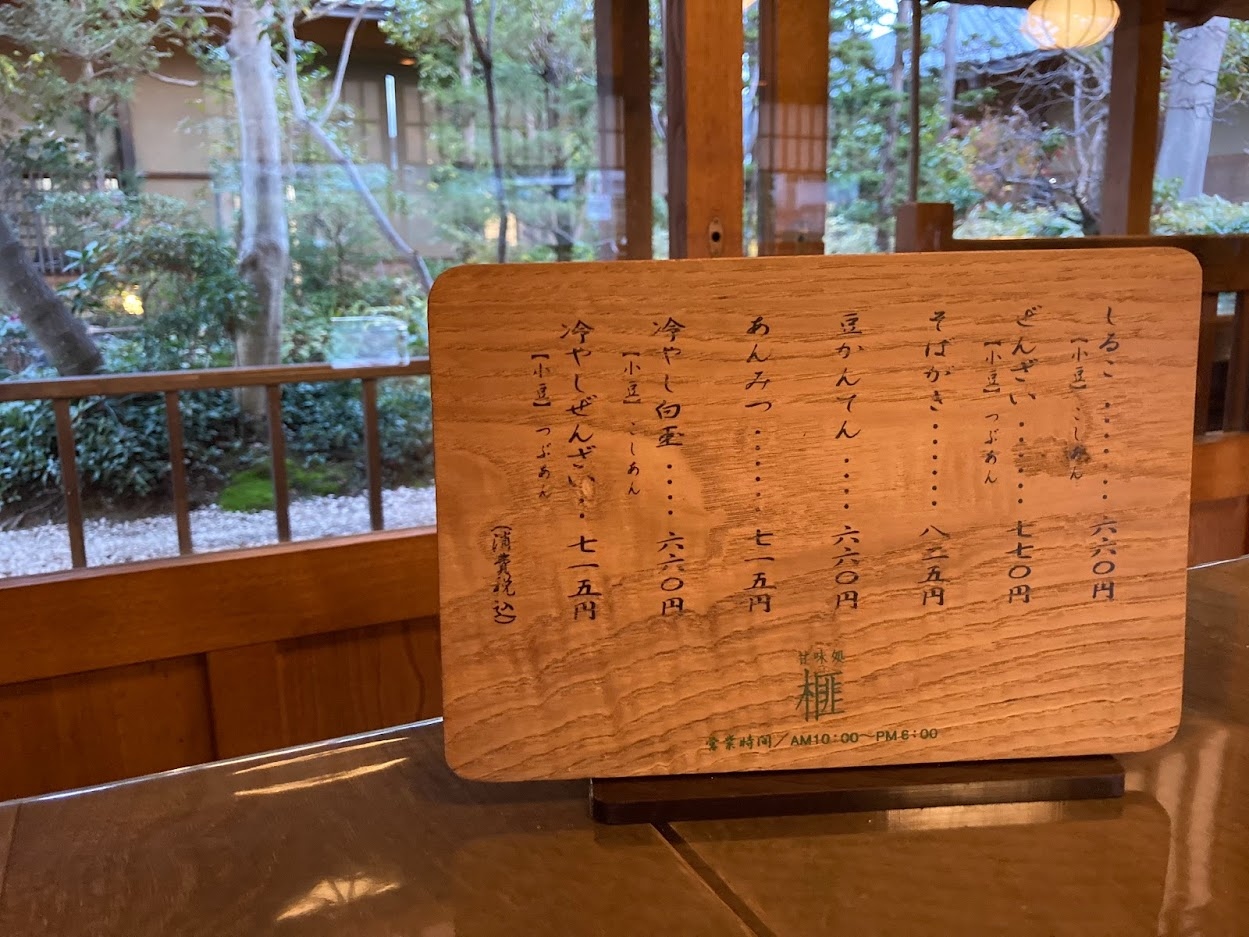 しるこ・・・・・・・六六〇円
【小豆】こしあん
ぜんざい・・・・・・七七〇円
【小豆】つぶあん
そばがき・・・・・・八二五円
豆かんてん・・・・六六〇円
あんみつ・・・・・・七一五円
冷やし白玉・・・・六六〇円
【小豆】こしあん
冷やしぜんざい・・七一五円
【小豆】つぶあん
(消費税込)
甘味処
榧
営業時間/AM10:00〜PM6:00